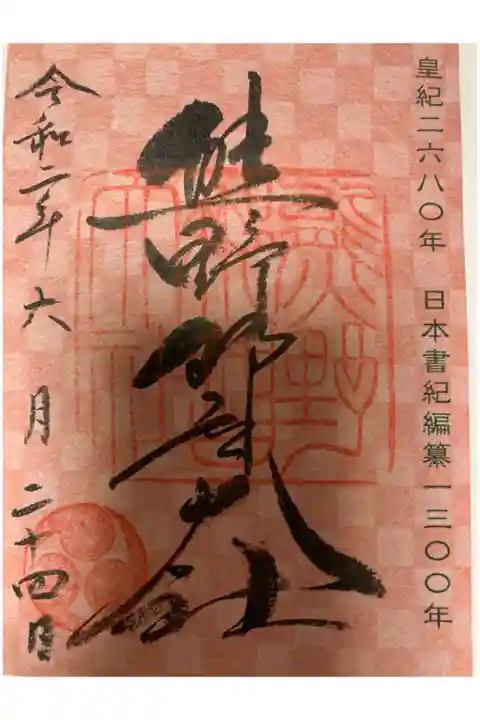 皇紀二六八〇年 日本書紀編纂一三〇〇年
熊野
社
令和二年六月二十四日